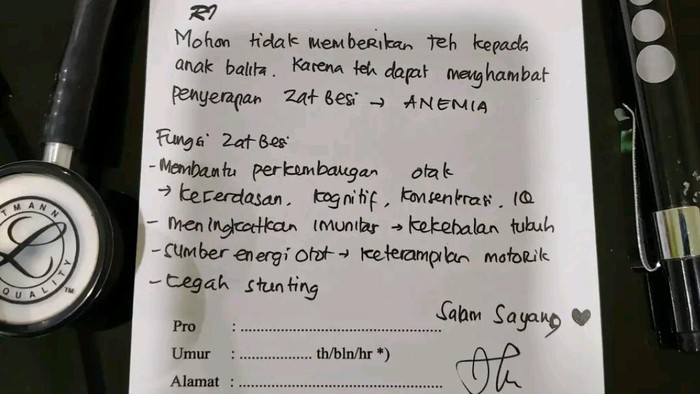 R/
Mohon tidak memberikan teh kepada
anak balita. Karena teh dapat menghambat
penyerapan zat Besi → ANEMIA
Fungsi Zat Besi
- Membantu perkembangan otak
→ kecerdasan, kognitif, konsentrasi, IQ
- meningkatkan imunitas → kekebalan tubuh
- sumber energi otot → keterampilan motorik
- cegah stunting
Salam Sayang ♥
Pro : ..........
Umur : .......... th/bln/hr *)
Alamat : ..........
TTMANN
QUALITY™